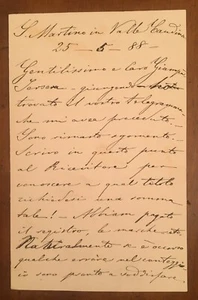 S. Martino in Valle Caudina
25 - 5 - 88 -
Gentilissimo e caro
Jersera - giungendo in
trovato il vostro telegramma
che mi avea preceduto -
Sono rimasto sgomento.
Scrivo in questo punto
al Ricevitore per
conoscere a qual titolo
richiedesi una somma
tale! - Abbiam pagato
il registro, le
Naturalmente se è occorso
qualche errore nel conteggio
io sono pronto a soddisfare.